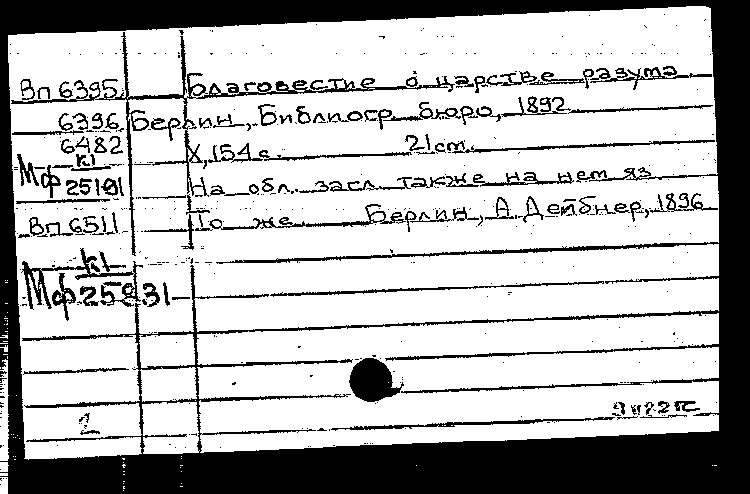 Вп 6395 Благовестие о царстве разума
6396 Берлин, Библиогр. бюро, 1892
6482 X, 154 с. 21 cm.
Мф К1/25101 На обл. загл. также на нем яз
Вп 6511 То же Берлин, А. Дейбнер, 1896
Мф К1/25931
2